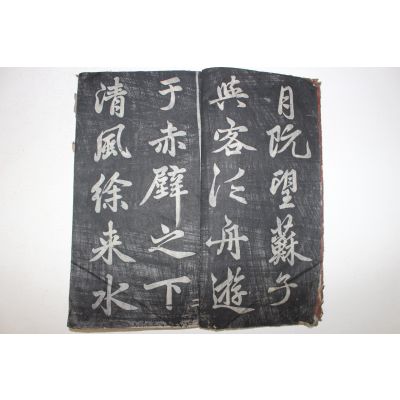 月既望蘇子
與客泛舟遊
于赤壁之下
清風徐来水